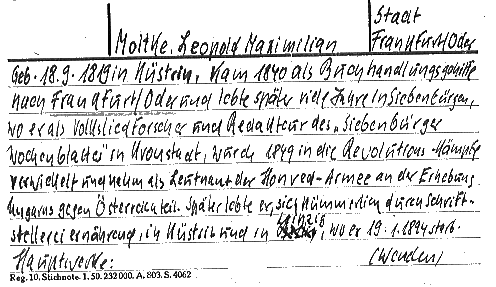 Stadt
Moltke, Leopold Maximilian Frankfurt/Oder
Geb. 18.9.1819 in Küstrin, kam 1840 als Buchhandlungsgehilfe
nach Frankfurt/Oder und lebte später viele Jahre in Siebenbürgen,
wo er als Volksliedforscher und Redakteur des „Siebenbürger
Wochenblattes" in Kronstadt, wurde 1849 in die Revolutions-Kämpfe
verwickelt und nahm als Leutnant der Honved-Armee an der Erhebung
Ungarns gegen Österreich teil. Später lebte er, sich kümmerlich durch Schrift-
stellerei ernährend, in Küstrin und in Leipzig, wo er 19.1.1894 starb.
Hauptwerke: (wenden)
Reg. 10. Stichnote. 1. 50. 232000. A. 803. S. 4062